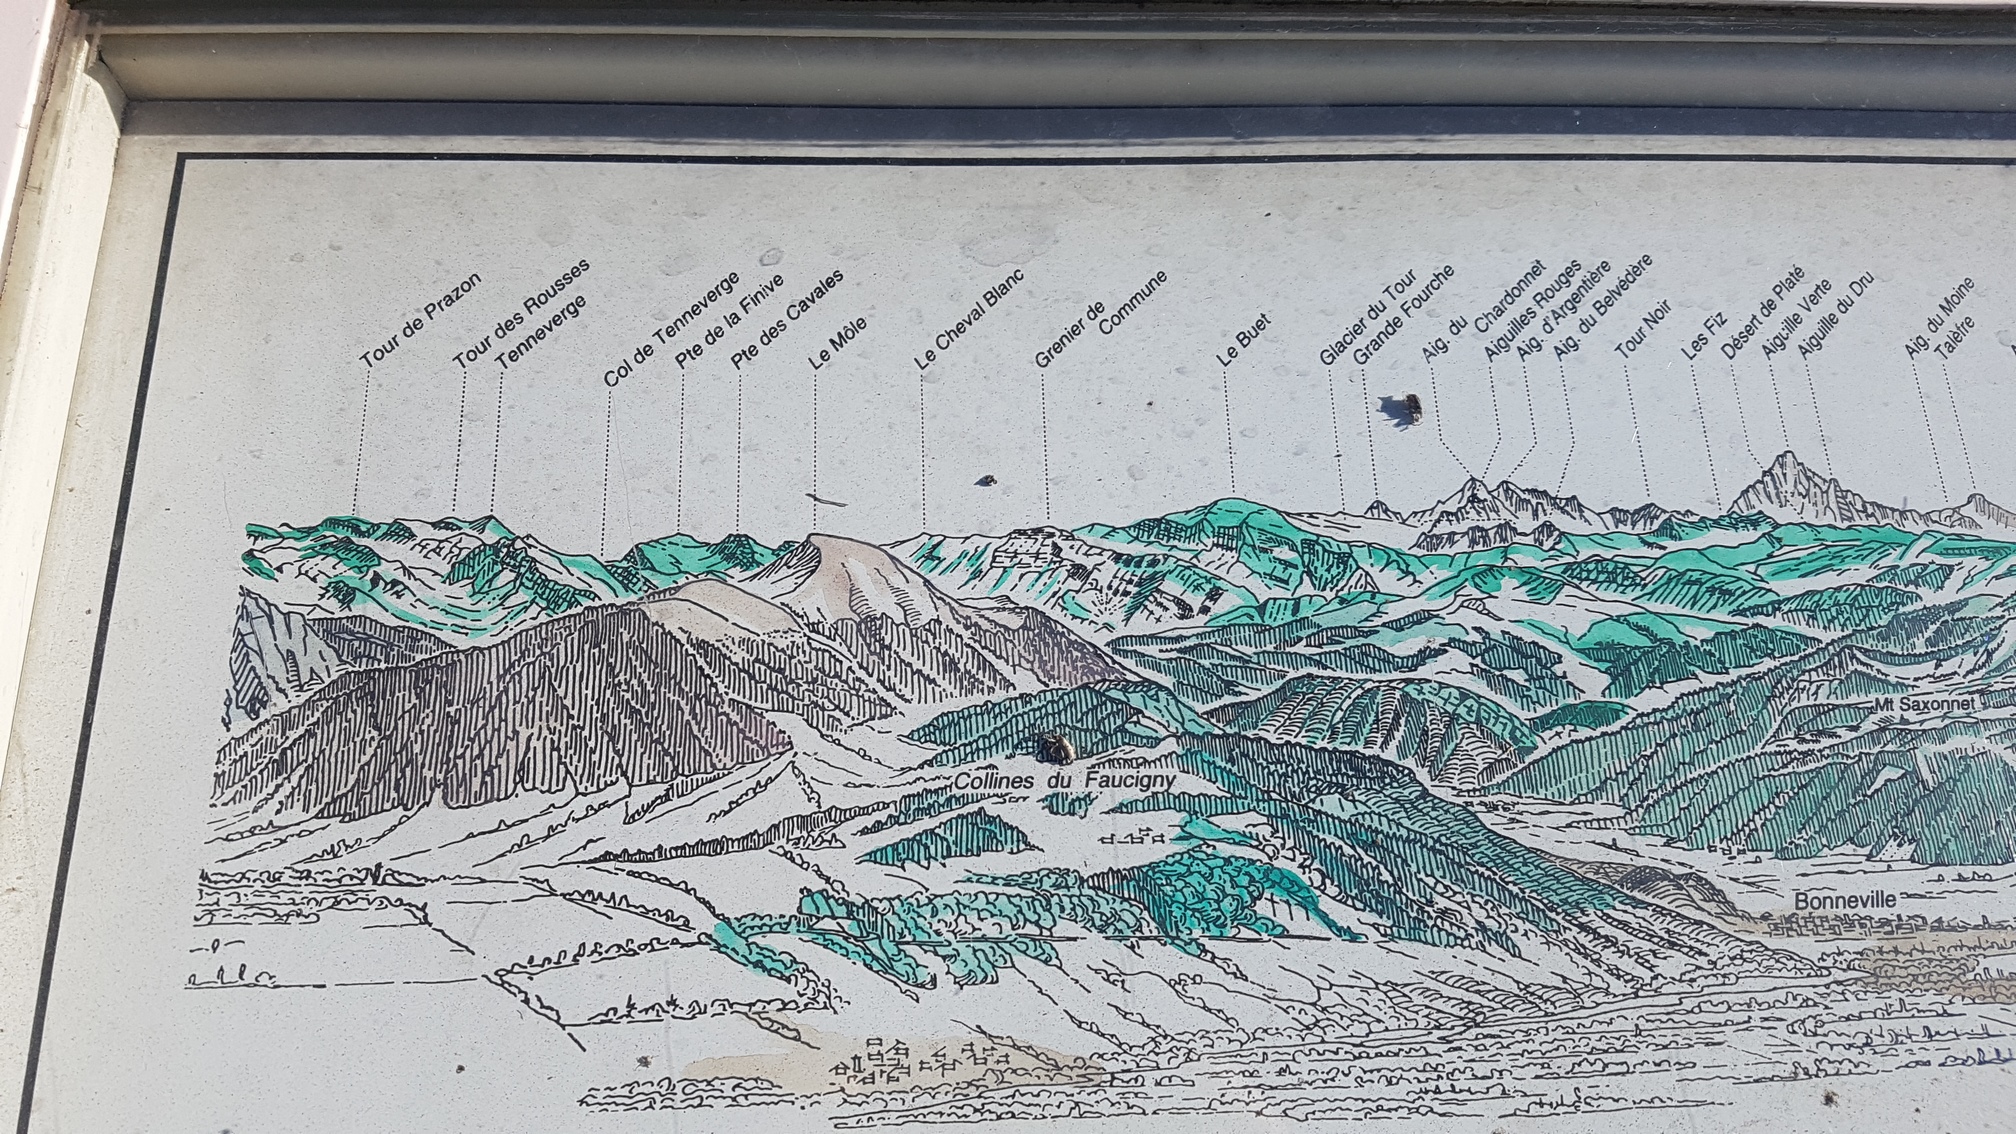 Tour de Prazon
Tour des Rousses
Tenneverge
Col de Tenneverge
Pte de la Finive
Pte des Cavales
Le Môle
Le Cheval Blanc
Grenier de
Commune
Le Buet
Glacier du Tour
Grande Fourche
Aig. du
Chardonnet
Aiguilles Rouges
Aig. d'Argentière
Aig. du Belvédère
Tour Noir
Les Fiz
Désert de Platé
Aiguille Verte
Aiguille du Dru
Aig. du Moine
Talèfre
Mt Saxonnet
Collines du Faucigny
Bonneville